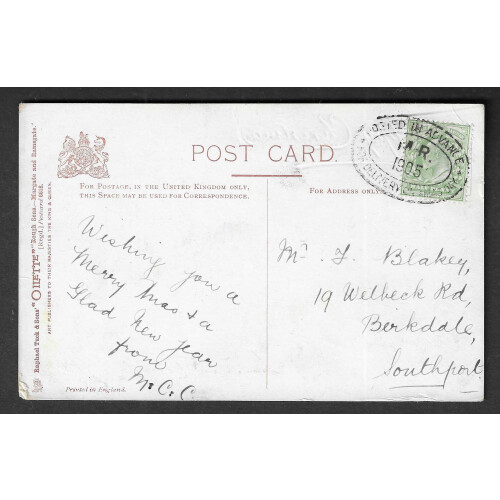 POST CARD.
FOR POSTAGE, IN THE UNITED KINGDOM ONLY,
THIS SPACE MAY BE USED FOR CORRESPONDENCE.
FOR ADDRESS ONLY
POSTED IN ADVANCE
M.R.
1905
DELIVERY
Wishing you a
Merry Xmas & a
Glad New Year
from
M. C. C.
Mr F. Blakey,
19 Welbeck Rd,
Berkdale,
Southport
Printed in England.
Raphael Tuck & Sons' "OILETTE" "Rough Seas.—Margate and Ramsgate."
[Regd.] Postcard
ART PUBLISHERS TO THEIR MAJESTIES THE KING & QUEEN.